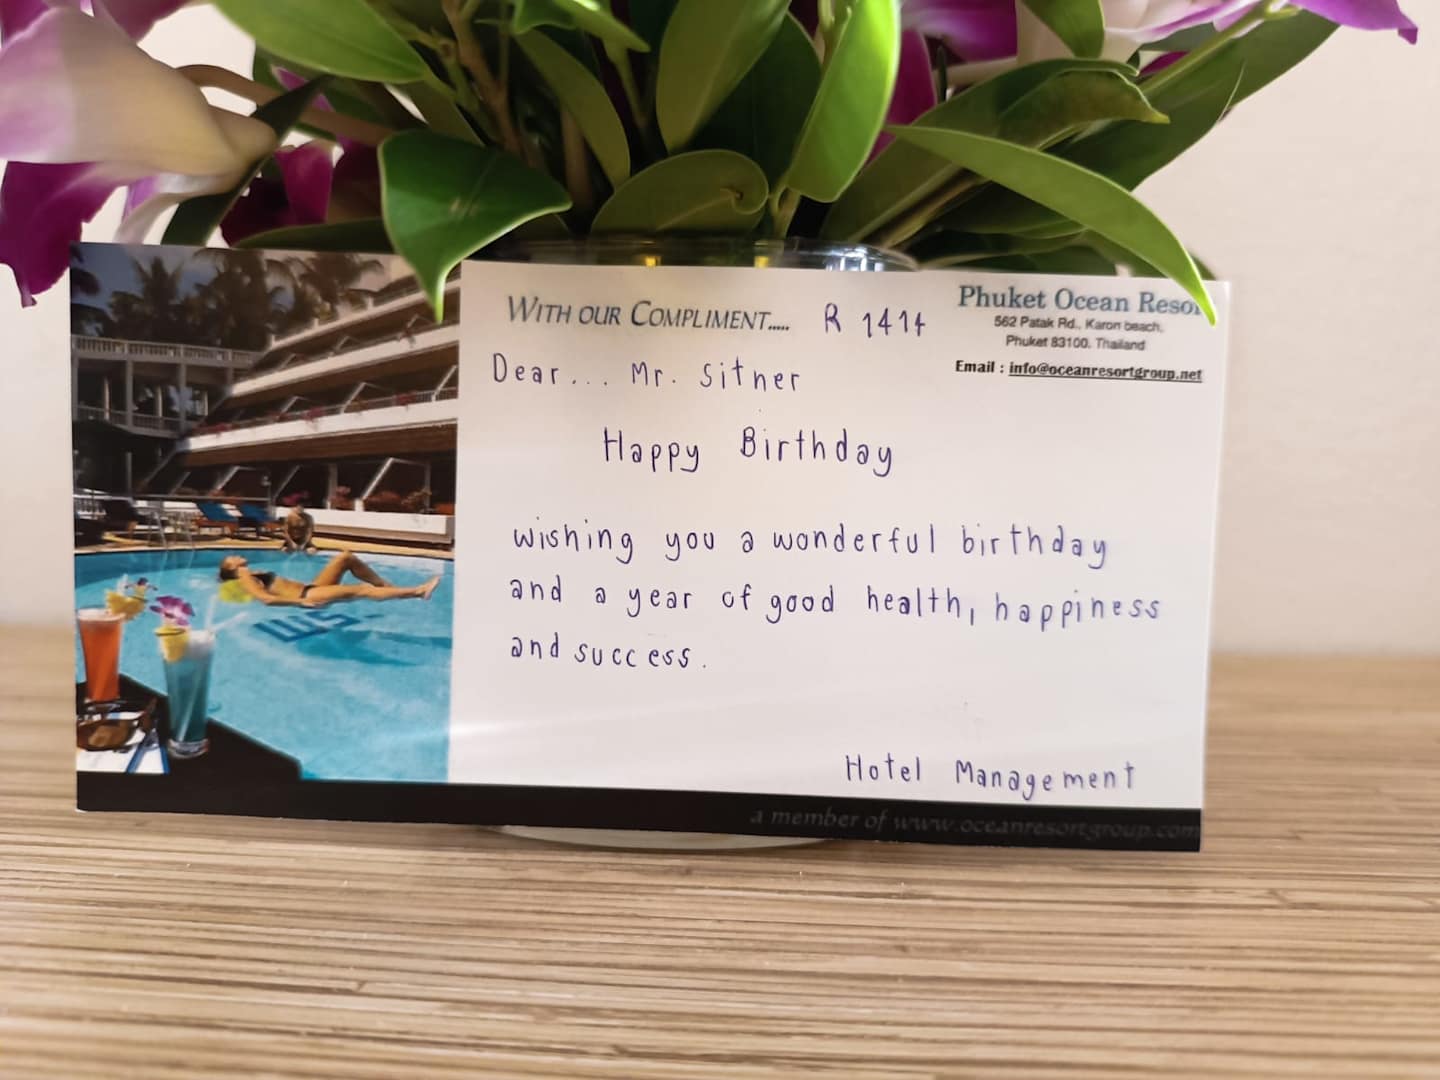 WITH OUR COMPLIMENT..... R 1414
Phuket Ocean Resor
562 Patak Rd., Karon beach,
Phuket 83100. Thailand
Email : info@oceanresortgroup.net
Dear... Mr. Sitner
Happy Birthday
wishing you a wonderful birthday
and a year of good health, happiness
and success.
Hotel Management
a member of www.oceanresortgroup.com